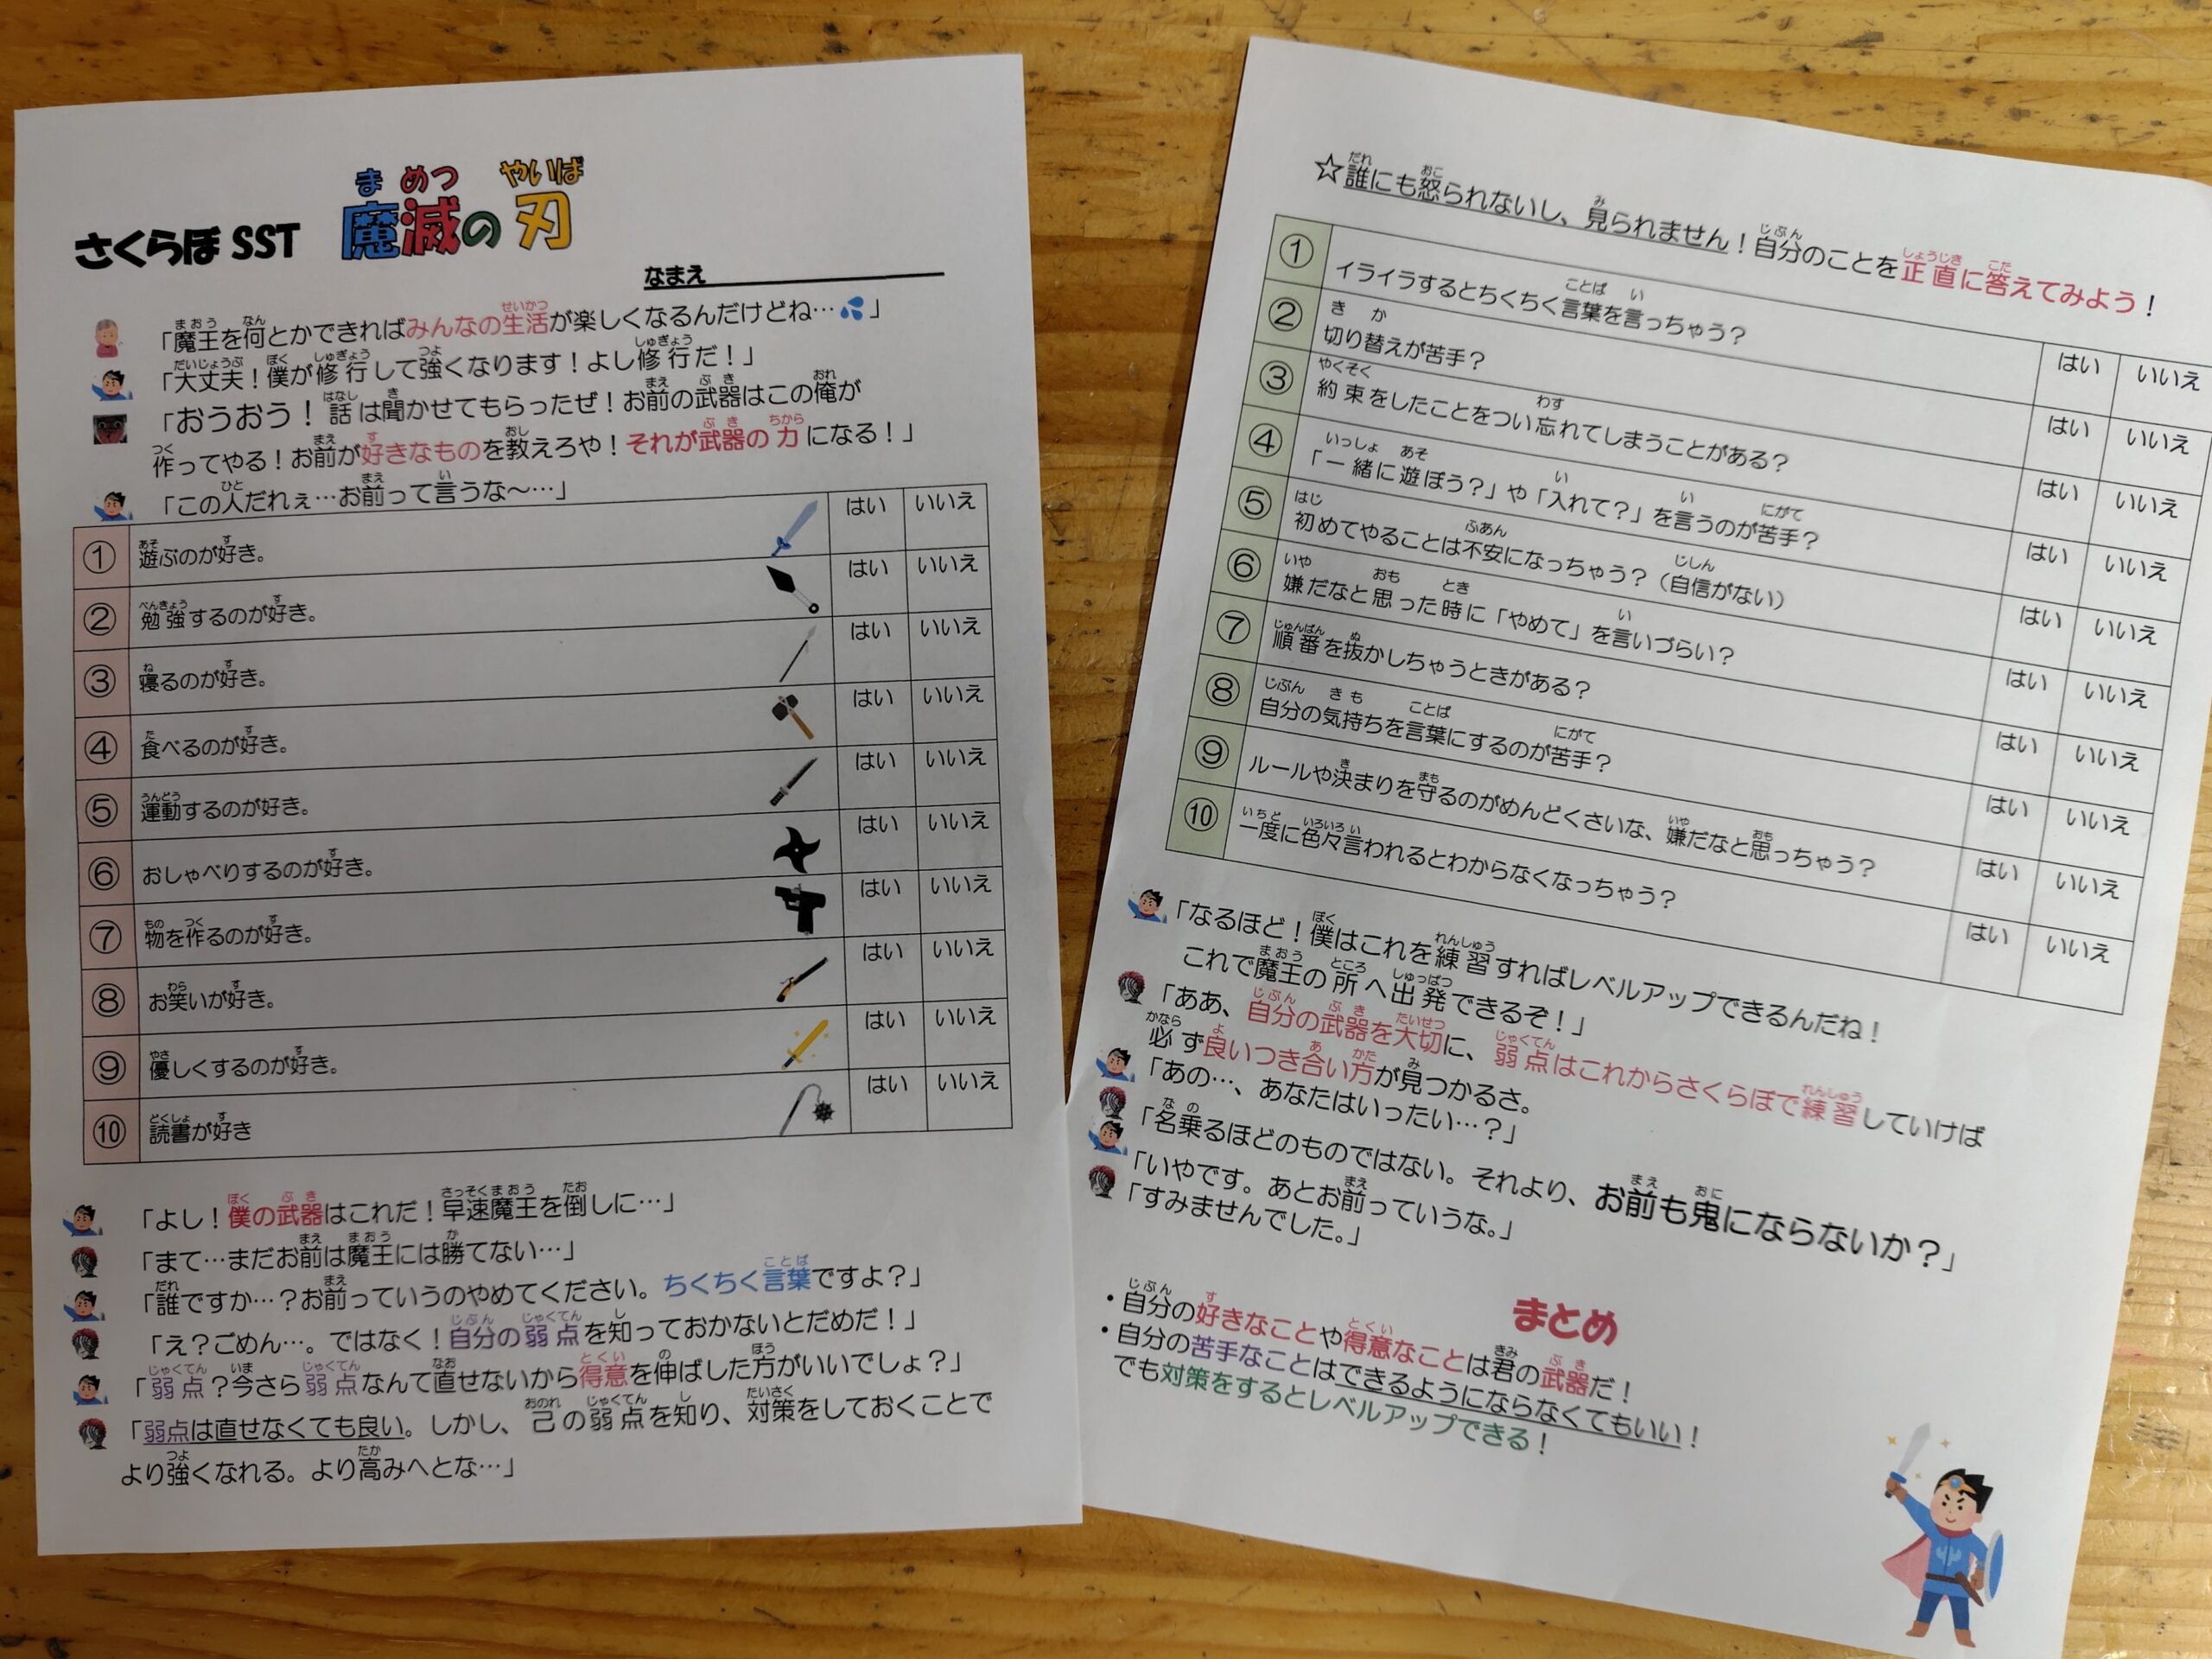 さくらぼ SST 魔滅の刃
なまえ
「魔王を何とかできればみんなの生活が楽しくなるんだけどね…💦」
「大丈夫！僕が修行して強くなります！よし修行だ！」
「おうおう！話は聞かせてもらったぜ！お前の武器はこの俺が
作ってやる！お前が好きなものを教えろや！それが武器の力になる！」
「この人だれぇ…お前って言うな～…」
① 遊ぶのが好き。 はい いいえ
② 勉強するのが好き。 はい いいえ
③ 寝るのが好き。 はい いいえ
④ 食べるのが好き。 はい いいえ
⑤ 運動するのが好き。 はい いいえ
⑥ おしゃべりするのが好き。 はい いいえ
⑦ 物を作るのが好き。 はい いいえ
⑧ お笑いが好き。 はい いいえ
⑨ 優しくするのが好き。 はい いいえ
⑩ 読書が好き はい いいえ
「よし！僕の武器はこれだ！早速魔王を倒しに…」
「まて…まだお前は魔王には勝てない…」
「誰ですか…？お前っていうのやめてください。ちくちく言葉ですよ？」
「え？ごめん…。ではなく！自分の弱点を知っておかないとだめだ！」
「弱点？今さら弱点なんて直せないから得意を伸ばした方がいいでしょ？」
「弱点は直せなくても良い。しかし、己の弱点を知り、対策をしておくことで
より強くなれる。より高みへとな…」
☆誰にも怒られないし、見られません！自分のことを正直に答えてみよう！
① イライラするとちくちく言葉を言っちゃう？ はい いいえ
② 切り替えが苦手？ はい いいえ
③ 約束をしたことをつい忘れてしまうことがある？ はい いいえ
④ 「一緒に遊ぼう？」や「入れて？」を言うのが苦手？ はい いいえ
⑤ 初めてやることは不安になっちゃう？（自信がない） はい いいえ
⑥ 嫌だなと思った時に「やめて」を言いづらい？ はい いいえ
⑦ 順番を抜かしちゃうときがある？ はい いいえ
⑧ 自分の気持ちを言葉にするのが苦手？ はい いいえ
⑨ ルールや決まりを守るのがめんどくさいな、嫌だなと思っちゃう？ はい いいえ
⑩ 一度に色々言われるとわからなくなっちゃう？ はい いいえ
「なるほど！僕はこれを練習すればレベルアップできるんだね！
これで魔王の所へ出発できるぞ！」
「ああ、自分の武器を大切に、弱点はこれからさくらぼで練習していけば
必ず良いつき合い方が見つかるさ。
「あの…、あなたはいったい…？」
「名乗るほどのものではない。それより、お前も鬼にならないか？」
「いやです。あとお前っていうな。」
「すみませんでした。」
まとめ
・自分の好きなことや得意なことは君の武器だ！
・自分の苦手なことはできるようにならなくてもいい！
でも対策をするとレベルアップできる！